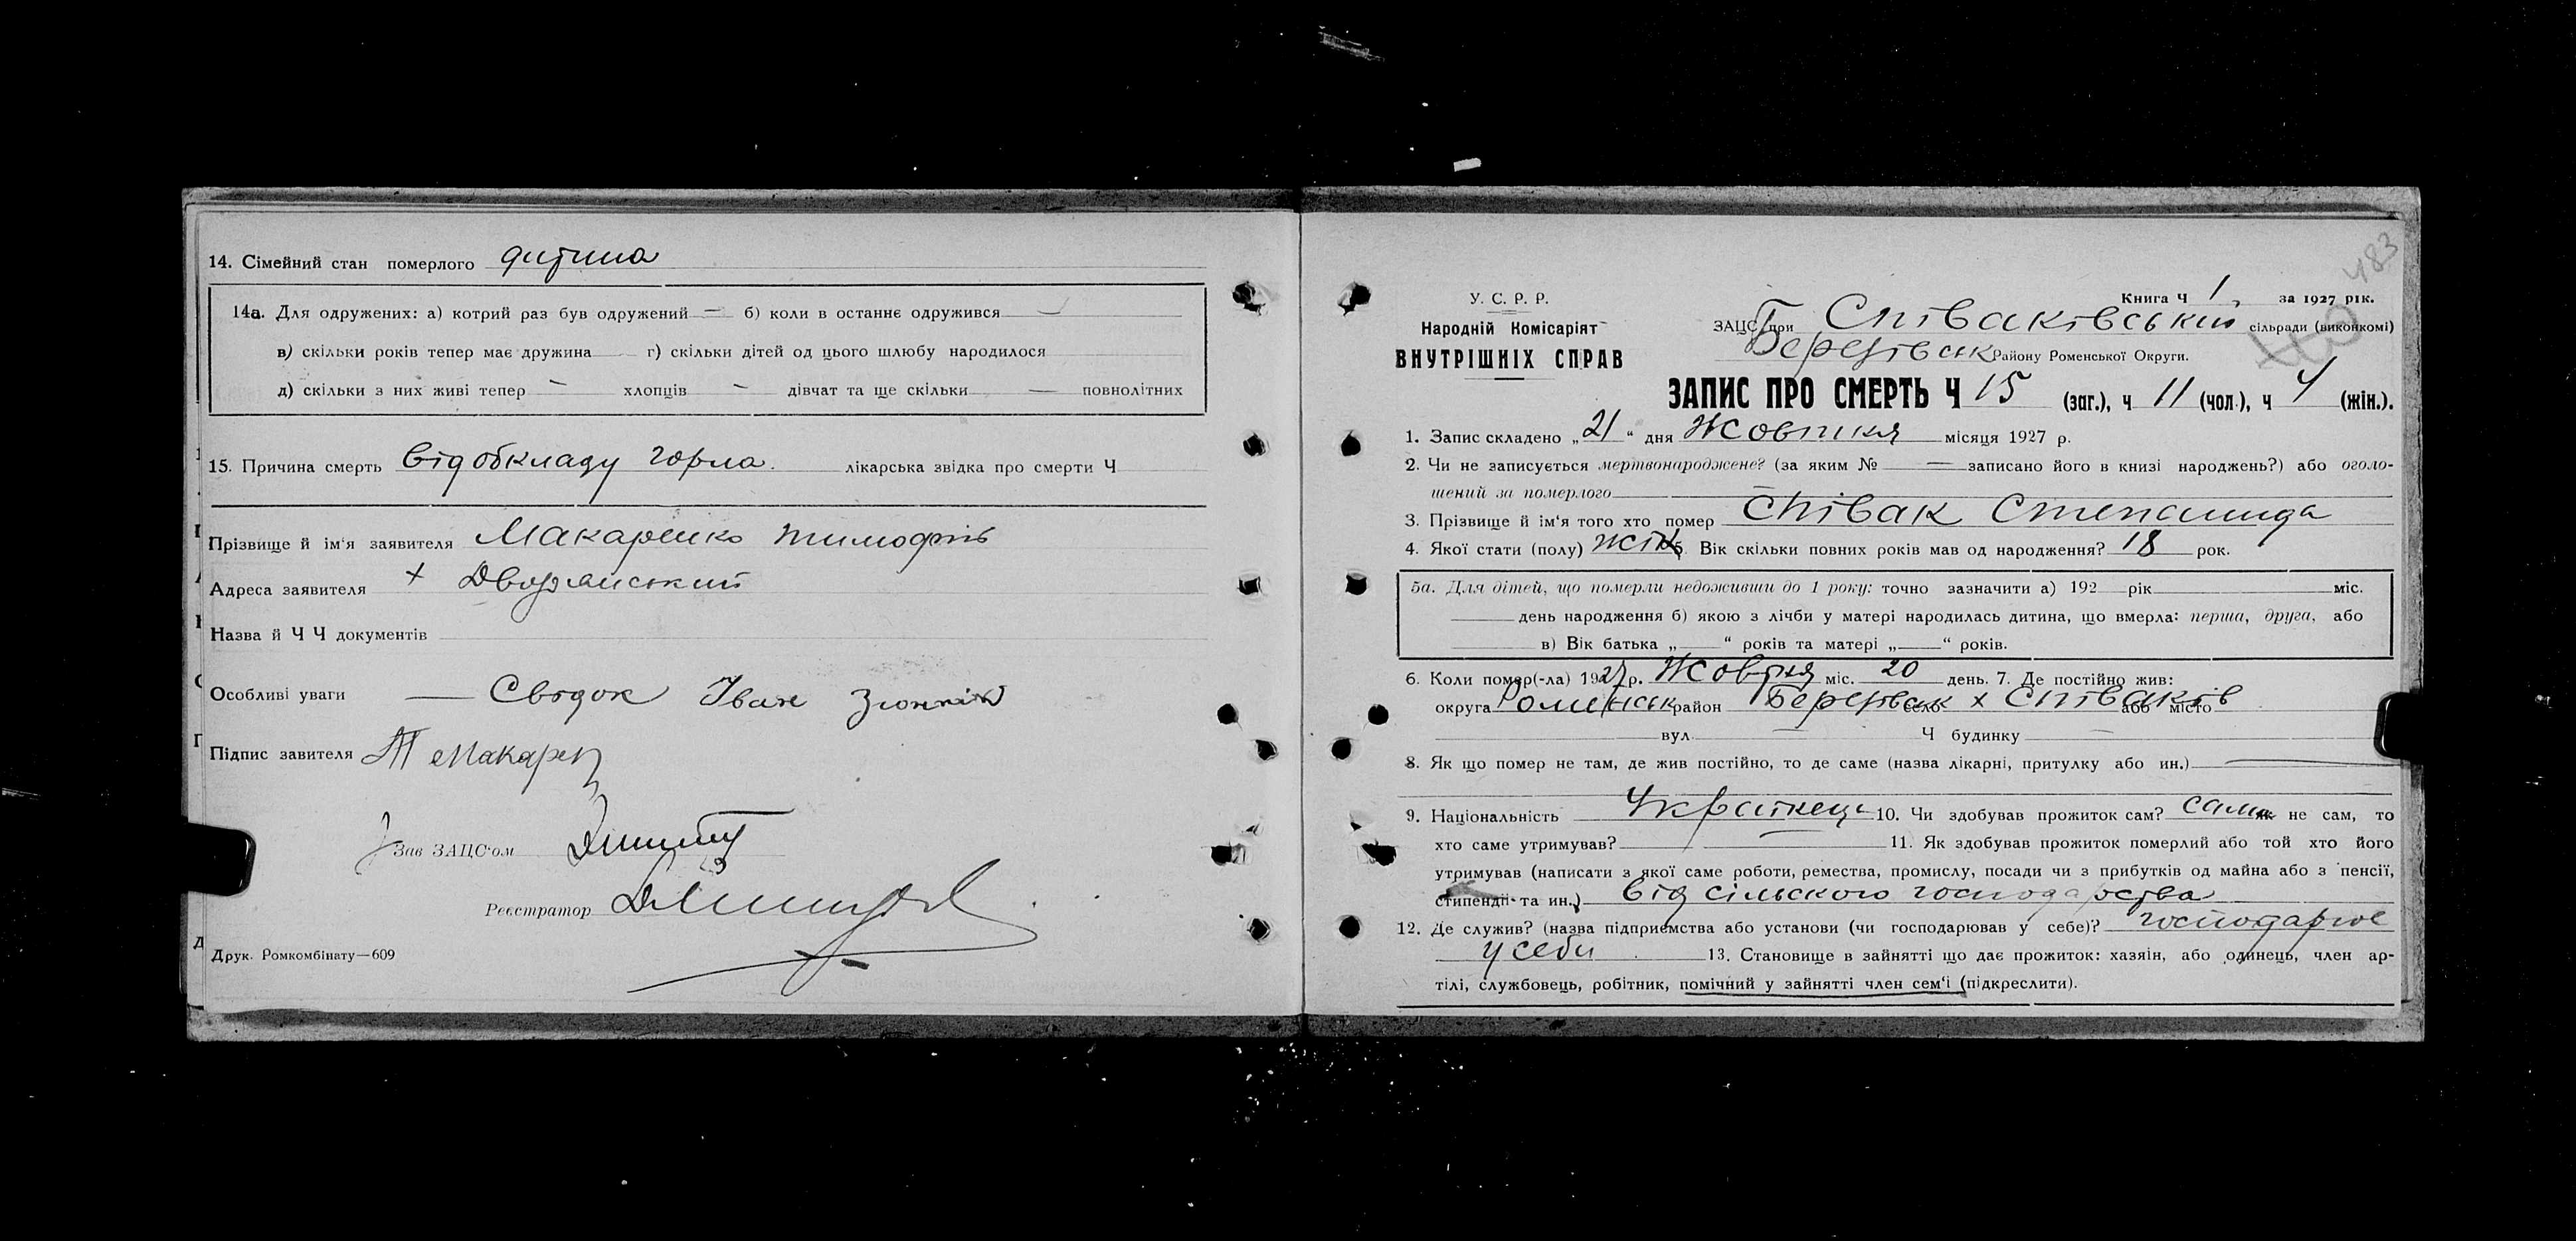 14. Сімейний стан померлого дитина
14а. Для одружених: а) котрий раз був одружений — б) коли в останнє одружився
в) скільки років тепер має дружина г) скільки дітей од цього шлюбу народилося
д) скільки з них живі тепер — хлопців — дівчат та ще скільки — повнолітних
15. Причина смерть від обкладу горла. лікарська звідка про смерти Ч
Прізвище й ім'я заявителя Макаренко Тимофій
Адреса заявителя х Дворянський
Назва й Ч Ч документів
Особливі уваги — Свідок Іван
Підпис завителя Т Макарен
Зав ЗАЦС'ом
Реєстратор
Друк. Ромкомбінату—609
483
У. С. Р. Р.
Народній Комісаріят
ВНУТРІШНІХ СПРАВ
Книга Ч 1 за 1927 рік.
ЗАЦС при Б Співаківській сільради (виконкомі)
Березівськ Району Роменської Округи.
ЗАПИС ПРО СМЕРТЬ Ч 15 (заг.), ч 11 (чол.), ч 4 (жін.).
1. Запис складено „21“ дня Жовтня місяця 1927 р.
2. Чи не записується мертвонароджене? (за яким № — записано його в книзі народжень?) або оголо-
шений за померлого
3. Прізвище й ім'я того хто помер Співак Степанида
4. Якої стати (полу) жін 5 Вік скільки повних років мав од народження? 18 рок.
5а. Для дітей, що померли недоживши до 1 року: точно зазначити а) 192 рік міс.
день народження б) якою з лічби у матері народилась дитина, що вмерла: перша, друга, або
в) Вік батька „ “ років та матері „ “ років.
6. Коли помер(-ла) 1927 р. Жовтня міс. 20 день. 7. Де постійно жив:
округа Роменськ район Березівськ село х Співаків або місто
вул. — Ч будинку —
8. Як що помер не там, де жив постійно, то де саме (назва лікарні, притулку або ин.) —
9. Національність Українець 10. Чи здобував прожиток сам? сам не сам, то
хто саме утримував? — 11. Як здобував прожиток померлий або той хто його
утримував (написати з якої саме роботи, ремества, промислу, посади чи з прибутків од майна або з пенсії,
стипендії та ин.) від сільского господарства
12. Де служив? (назва підприємства або установи (чи господарював у себе)? господарює
у себи 13. Становище в зайнятті що дає прожиток: хазяїн, або одинець, член ар-
тілі, службовець, робітник, помічний у зайнятті член сем'ї (підкреслити).